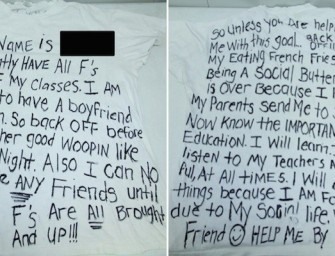 NAME is
tly HAVE All F's
F My classes. I AM
to have A boyfriend
n. So back OFF before
her good Woopin like
Night. Also I can NO
e ANY Friends until
F's Are All Brought
And up!!!
So unless you Are help
Me With this goal. BACK OFF
My EAting FRench FRies
Being A Social Butter
is over Because I F
My PArents Send Me to S
Now know the IMPORTAN
Education. I Will learn.
listen to My TeacheRs
Ful, At All tiMes. I Will
things becAuse I AM FA
due to My Social life.
Friend HELP ME By